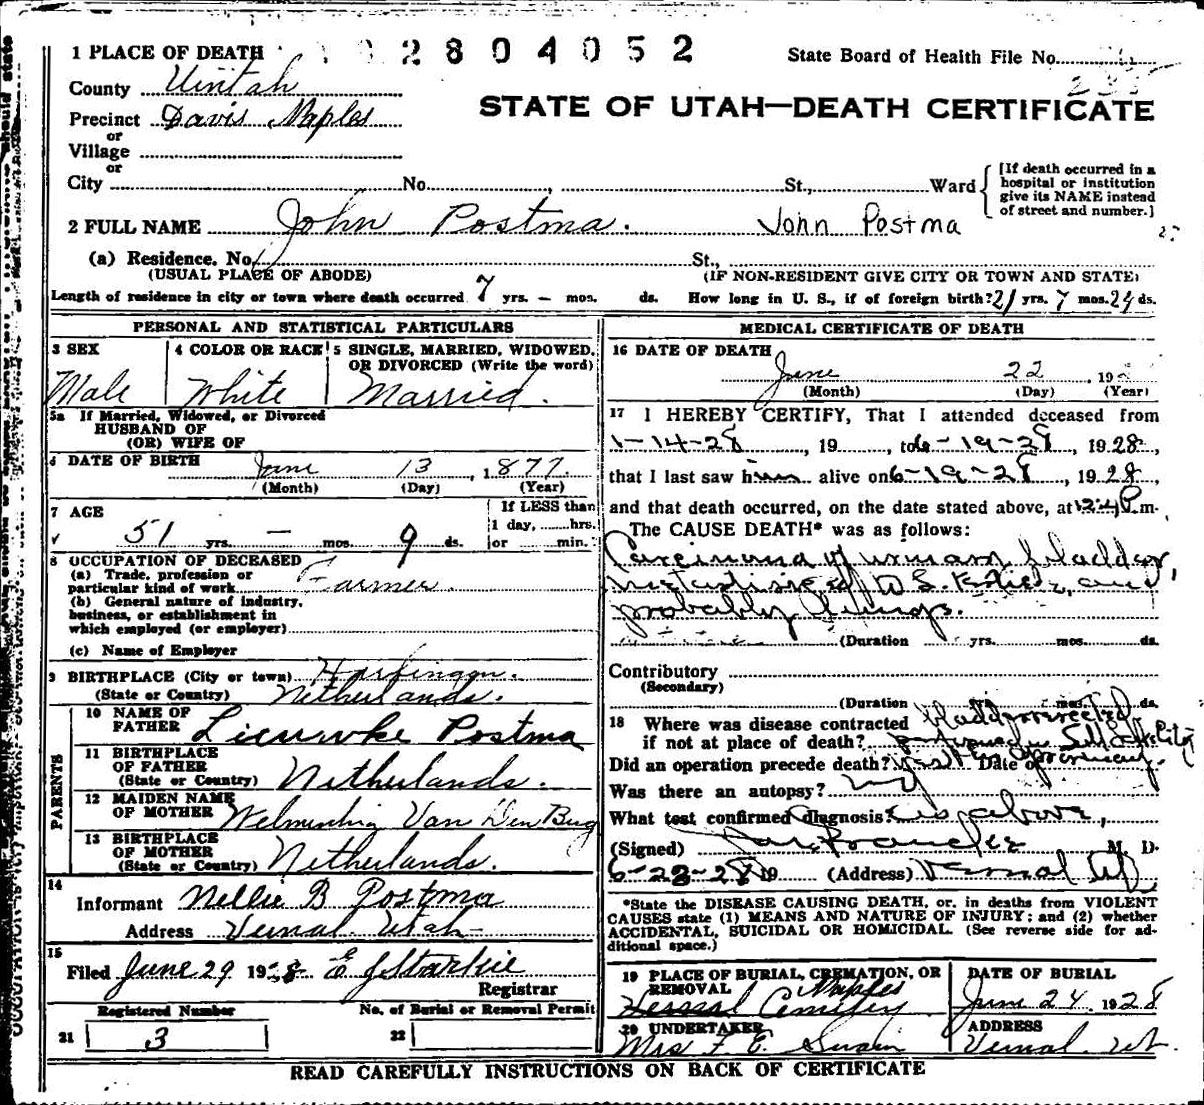 1 PLACE OF DEATH 2804052 State Board of Health File No.
County Uintah 235
Precinct Davis Naples STATE OF UTAH—DEATH CERTIFICATE
or
Village
or
City No. , St., Ward [If death occurred in a hospital or institution give its NAME instead of street and number.]
2 FULL NAME John Postma. John Postma
(a) Residence. No. St.,
(USUAL PLACE OF ABODE) (IF NON-RESIDENT GIVE CITY OR TOWN AND STATE)
Length of residence in city or town where death occurred 7 yrs. – mos. ds. How long in U. S., if of foreign birth? 21 yrs. 7 mos. 24 ds.
PERSONAL AND STATISTICAL PARTICULARS
3 SEX 4 COLOR OR RACE 5 SINGLE, MARRIED, WIDOWED, OR DIVORCED (Write the word)
Male White Married.
5a If Married, Widowed, or Divorced
HUSBAND OF
(OR) WIFE OF
6 DATE OF BIRTH June 13, 1877.
(Month) (Day) (Year)
7 AGE If LESS than
1 day, hrs.
51 yrs. – mos. 9 ds. or min.
8 OCCUPATION OF DECEASED
(a) Trade, profession or
particular kind of work Farmer.
(b) General nature of industry,
business, or establishment in
which employed (or employer)
(c) Name of Employer
9 BIRTHPLACE (City or town) Harlingen.
(State or Country) Netherlands.
PARENTS
10 NAME OF
FATHER Lieuwke Postma
11 BIRTHPLACE
OF FATHER
(State or Country) Netherlands.
12 MAIDEN NAME
OF MOTHER Van Den Burg
13 BIRTHPLACE
OF MOTHER
(State or Country) Netherlands.
14
Informant Nellie B Postma
Address Vernal. Utah
15
Filed June 29 1928 E J Starkie
Registrar
Registered Number No. of Burial or Removal Permit
21 3 22
MEDICAL CERTIFICATE OF DEATH
16 DATE OF DEATH
June 22, 192
(Month) (Day) (Year)
17 I HEREBY CERTIFY, That I attended deceased from
1-14-28, 19 , to 6-19-28, 1928,
that I last saw him alive on 6-19-28, 1928,
and that death occurred, on the date stated above, at m.
The CAUSE DEATH* was as follows:
Carcinoma of urinary bladder,
and
probably lungs.
(Duration yrs. mos. ds.
Contributory
(Secondary)
(Duration yrs. mos. ds.
18 Where was disease contracted
if not at place of death?
Did an operation precede death? Date of
Was there an autopsy? no
What test confirmed diagnosis? as above,
(Signed) M. D.
6-23-28 19 (Address) Vernal Ut
*State the DISEASE CAUSING DEATH, or, in deaths from VIOLENT
CAUSES state (1) MEANS AND NATURE OF INJURY; and (2) whether
ACCIDENTAL, SUICIDAL OR HOMICIDAL. (See reverse side for ad-
ditional space.)
19 PLACE OF BURIAL, CREMATION, OR DATE OF BURIAL
REMOVAL Naples
Cemetery June 24 1928
20 UNDERTAKER ADDRESS
Mrs F. E. Swain Vernal. Ut.
READ CAREFULLY INSTRUCTIONS ON BACK OF CERTIFICATE